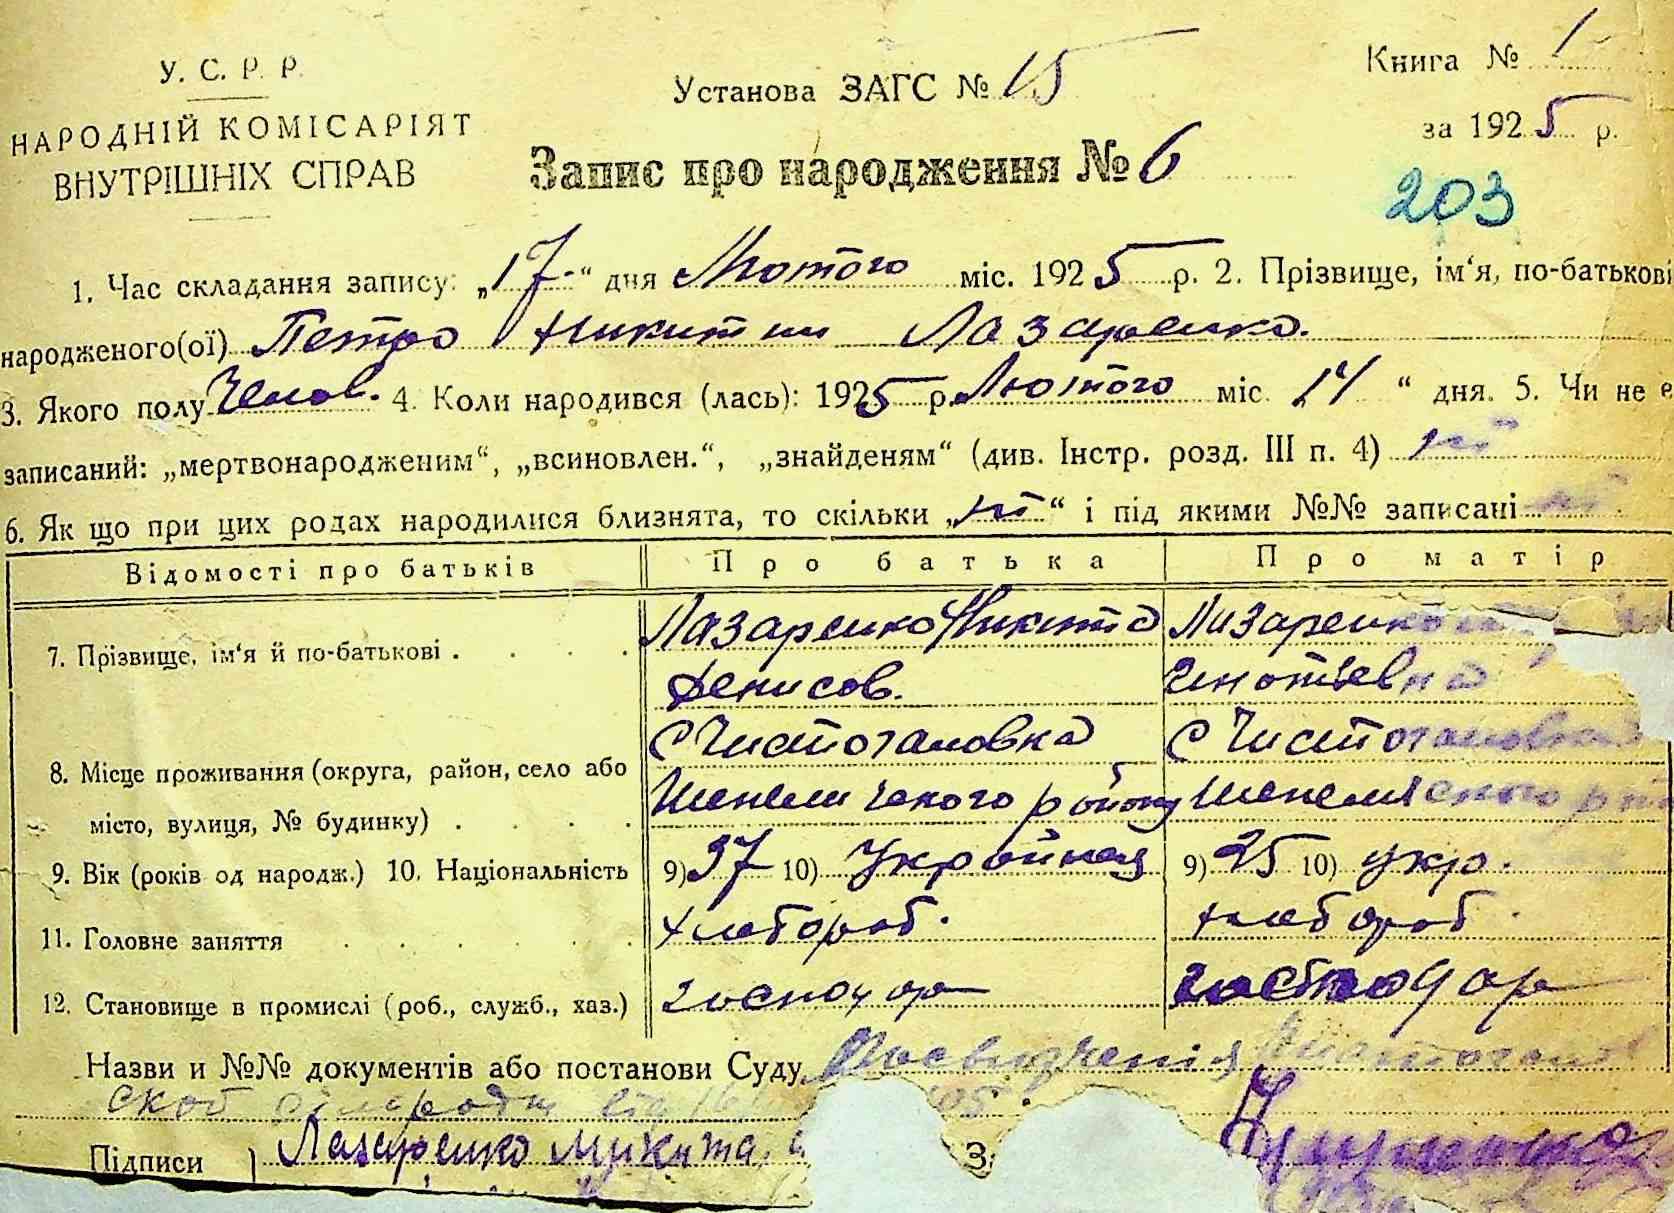 У. С. Р. Р.
НАРОДНІЙ КОМІСАРІЯТ
ВНУТРІШНІХ СПРАВ
Установа ЗАГС № 15
Книга № 1
за 1925 р.
Запис про народження № 6
203
1. Час складання запису: „17“ дня Лютого міс. 1925 р. 2. Прізвище, ім‘я, по-батькові
народженого(ої) Петро Никитин Лазаренко.
3. Якого полу Челов. 4. Коли народився (лась): 1925 р. Лютого міс. „14“ дня. 5. Чи не є
записаний: „мертвонародженим“, „всиновлен.“, „знайденям“ (див. Інстр. розд. III п. 4) ні
6. Як що при цих родах народилися близнята, то скільки „ні“ і під якими №№ записані ні
Відомості про батьків Про батька Про матір
7. Прізвище, ім‘я й по-батькові . . . . Лазаренко Никита Лазаренко
Денисов.
С Чистогаловка С Чистогаловка
8. Місце проживання (округа, район, село або
місто, вулиця, № будинку) . . . . Шепеличского району
9. Вік (років од народж.) 10. Національність 9) 37 10) Україінец 9) 25 10) укр.
11. Головне заняття . . . . . . хлебороб. хлебороб.
12. Становище в промислі (роб., служб., хаз.) господар господар
Назви и №№ документів або постанови Суду Посвідченія Чистогалов
ской сільради від
Підписи Лазаренко Микита,
З